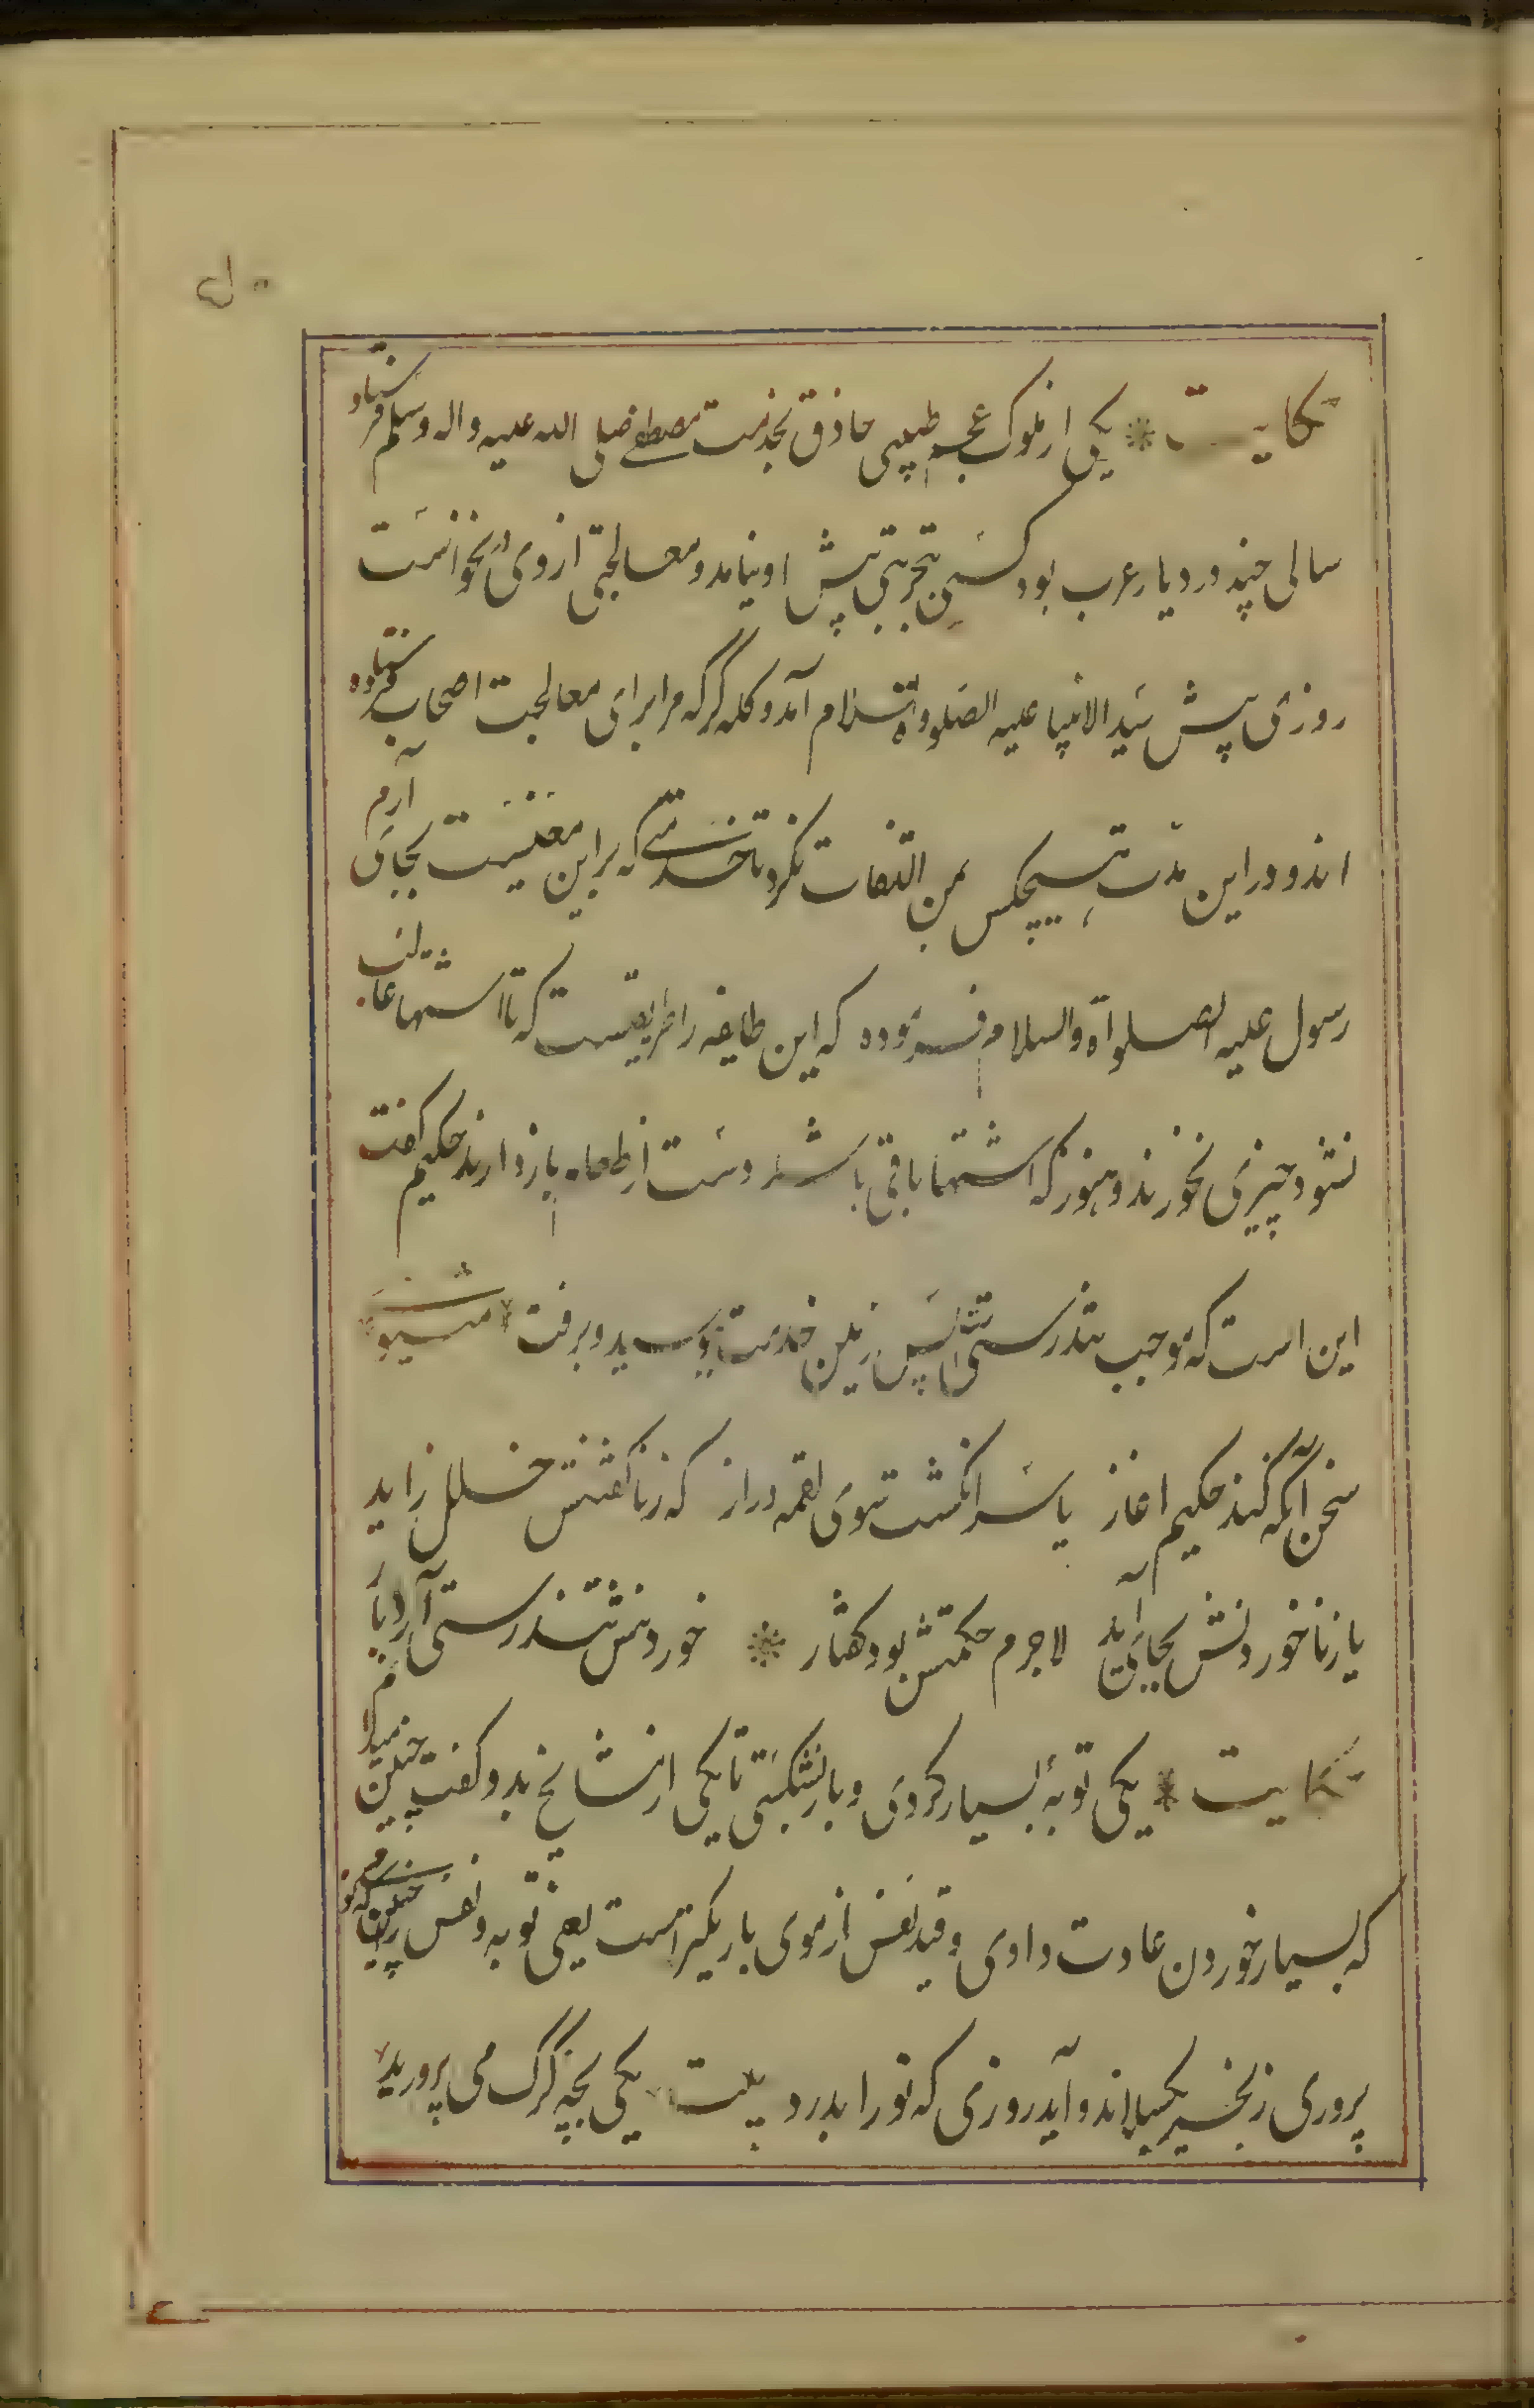 حکایت * یکی از ملوک عجم طبیبی حاذق بخدمت مصطفی صلی الله علیه واله وسلم فرستاد
سالی چند در دیار عرب بود کسی بتجربتی پیش او نیامد و معالجتی از وی درنخواست
روزی پیش سید الانبیا علیه الصلوواة السلام آمد و کله کرد که مرا برای معالجت اصحاب فرستاده
اند و در این مدت هیچکس بمن التفات نکرد تا خدمتی که بر این معینست بجای آرم
رسول علیه الصلواة والسلام فرموده که این طایفه را طریقیست که تا اشتها غالب
نشود چیزی نخورند و هنوز که اشتها باقی باشد دست از طعام بازدارند حکیم گفت
این است که موجب تندرستی است پس زمین خدمت ببوسید و برفت * مثنوی
سخن آنگه کند حکیم اغاز یا سر انکشت سوی لقمه دراز که زنا کفتنش خلل زاید
یا زنا خوردنش بجان آید لاجرم حکمتش بود کفتار * خوردنش تندرستی آرد بار
حکایت * یکی توبۀ بسیار کردی و باز شکستی تا یکی از مشایخ بدو کفت چنین میدانم
که بسیار خوردن عادت داری و قید نفس از موی باریکتر است یعنی توبه و نفس را چنین که تو
پروری زنجیر بکسلاند و آید روزی که تو را بدرد بیت یکی بچه گرگ می پرورید